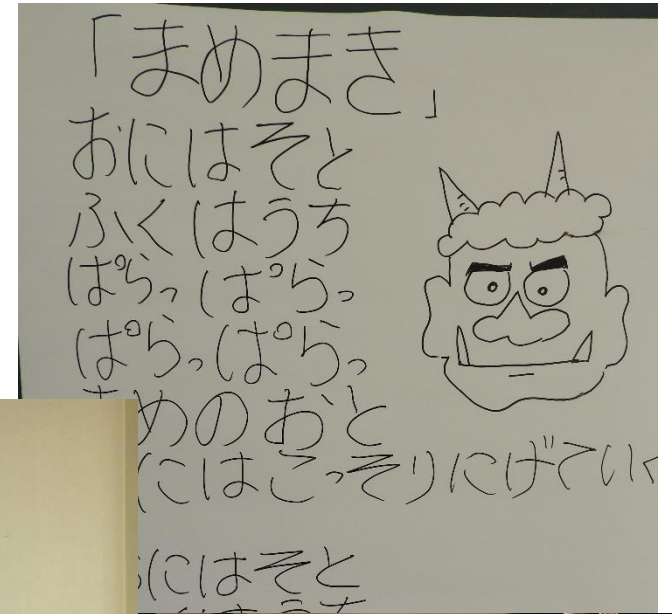 「まめまき」
おにはそと
ふくはうち
ぱらっぱらっ
ぱらっぱらっ
まめのおと
にはこっそりにげていく
にはそと